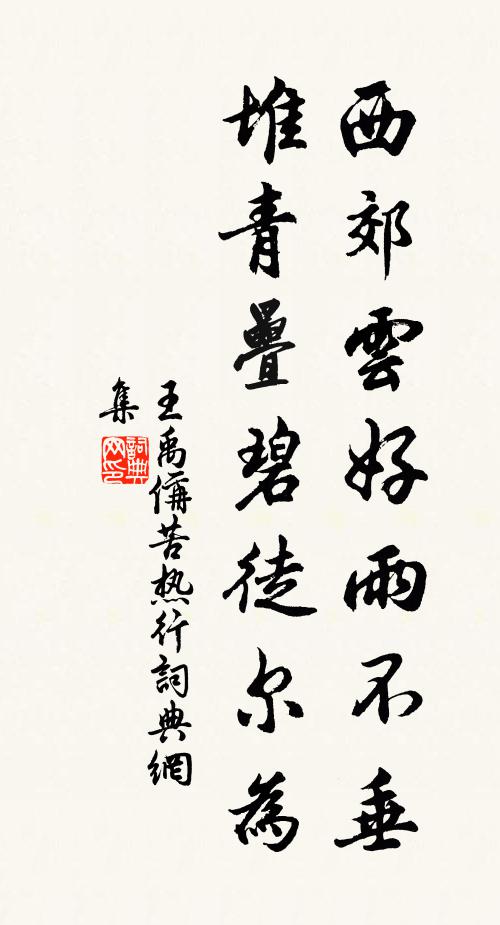 西郊雲好雨不垂
堆青疊碧徒尔為
王禹偁苦热行詞典網
集
詞典网印